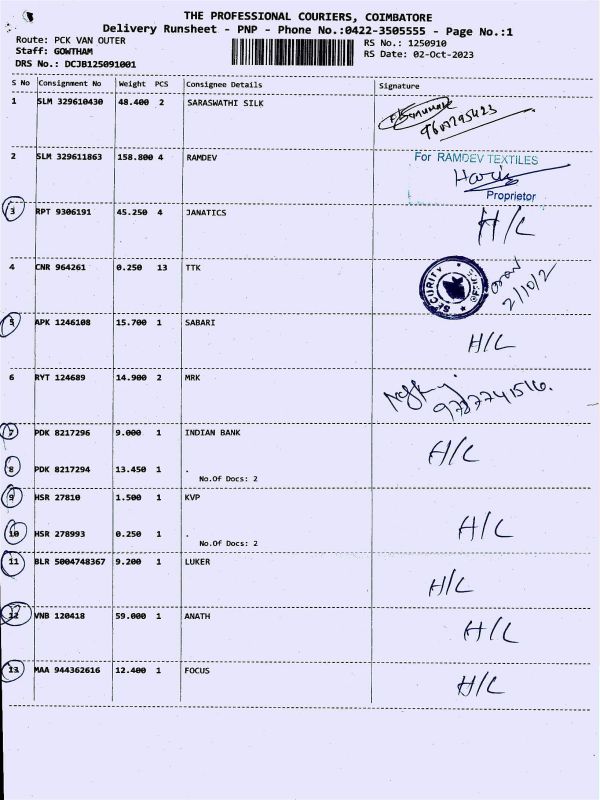 THE PROFESSIONAL COURIERS, COIMBATORE
Delivery Runsheet - PNP - Phone No.:0422-3505555 - Page No.:1
Route: PCK VAN OUTER
Staff: GOWTHAM
DRS No.: DCJB125091001
RS No.: 1250910
RS Date: 02-Oct-2023
S No Consignment No Weight PCS Consignee Details Signature
1 SLM 329610430 48.400 2 SARASWATHI SILK
2 SLM 329611863 158.800 4 RAMDEV
For RAMDEV TEXTILES
Proprietor
3 RPT 9306191 45.250 4 JANATICS H/L
4 CNR 964261 0.250 13 TTK
SECURITY
2/10/2
5 APK 1246108 15.700 1 SABARI H/L
6 RYT 124689 14.900 2 MRK
9787741516.
7 PDK 8217296 9.000 1 INDIAN BANK H/L
8 PDK 8217294 13.450 1 .
No.Of Docs: 2
9 HSR 27810 1.500 1 KVP
10 HSR 278993 0.250 1 . H/L
No.Of Docs: 2
11 BLR 5004748367 9.200 1 LUKER H/L
12 VNB 120418 59.000 1 ANATH H/L
13 MAA 944362616 12.400 1 FOCUS H/L